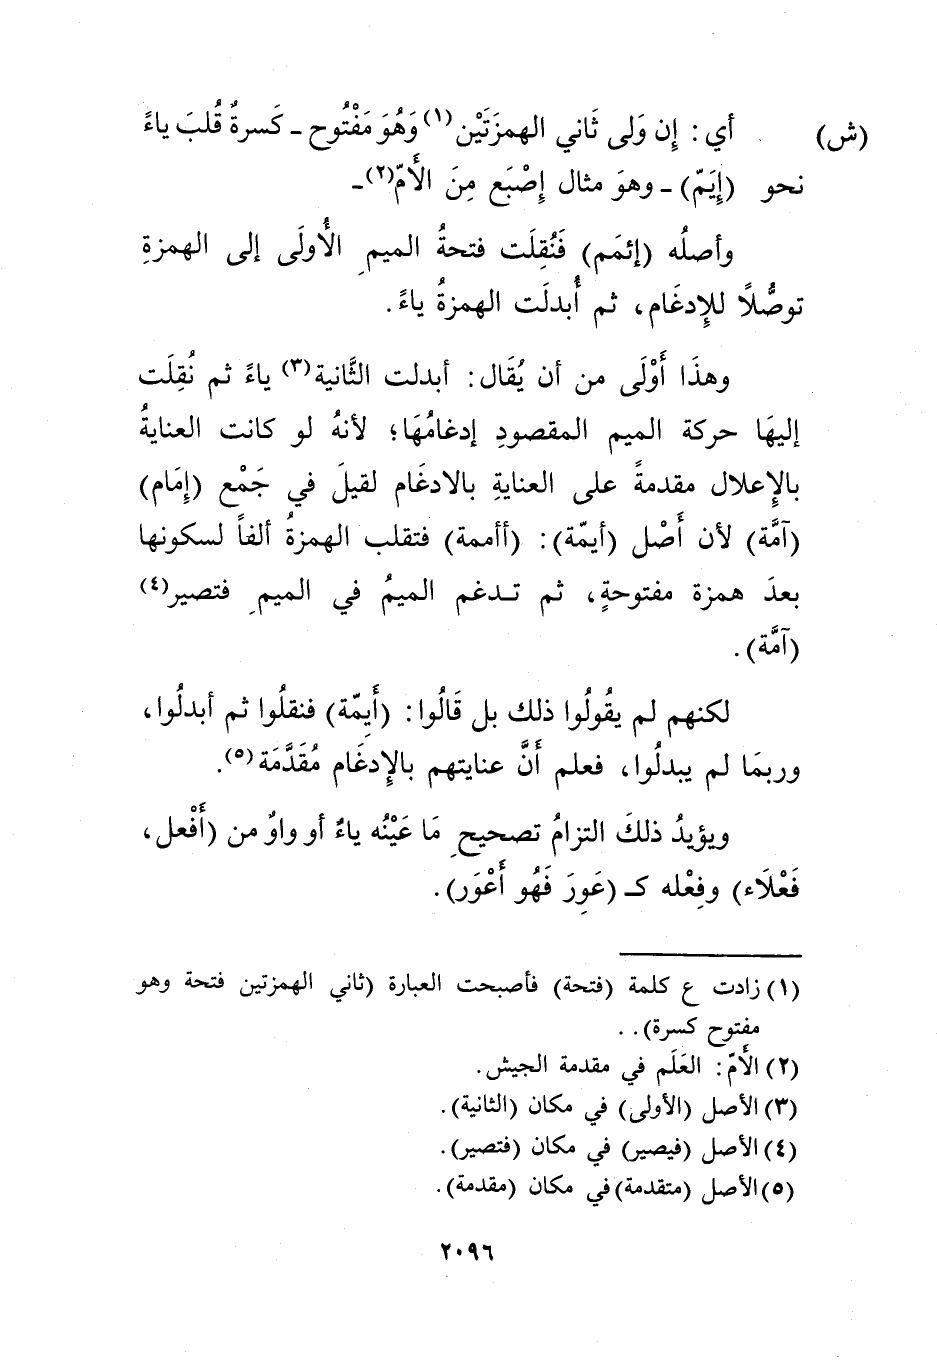 (ش) أي: إِن وَلى ثَاني الهمزَتَيْن(١) وَهُوَ مَفْتُوح - كَسرةٌ قُلبَ ياءً
نحو (إِيَمّ) - وهوَ مثال إِصْبَع مِنَ الأَمّ(٢)-
وأصلُه (إئمَم) فَنُقِلَت فتحةُ الميمِ الأُولَى إلى الهمزةِ
توصُّلًا للإِدغَام، ثم أُبدلَت الهمزةُ ياءً.
وهذَا أَوْلَى من أن يُقَال: أبدلت الثَّانية(٣) ياءً ثم نُقِلَت
إليهَا حركة الميم المقصودِ إدغامُهَا؛ لأنهُ لو كانت العنايةُ
بالإِعلال مقدمةً على العنايةِ بالادغَام لقيلَ في جَمْع (إِمَام)
(آمَّة) لأن أَصْل (أيمّة): (أأممة) فتقلب الهمزةُ ألفاً لسكونها
بعدَ همزة مفتوحةٍ، ثم تدغم الميمُ في الميمِ فتصير(٤)
(آمَّة).
لكنهم لم يقُولُوا ذلك بل قَالُوا: (أَيِمّة) فنقلُوا ثم أبدلُوا،
وربمَا لم يبدلُوا، فعلم أَنَّ عنايتهم بالإِدغَام مُقَدَّمَة(٥).
ويؤيدُ ذلكَ التزامُ تصحيحِ مَا عَيْنُه ياءٌ أو واوٌ من (أَفْعل،
فَعْلَاء) وفِعْله كـ (عَوِرَ فَهُو أَعْوَر).
(١) زادت ع كلمة (فتحة) فأصبحت العبارة (ثاني الهمزتين فتحة وهو
مفتوح كسرة)..
(٢) الأَمّ: العَلَم في مقدمة الجيش.
(٣) الأصل (الأولى) في مكان (الثانية).
(٤) الأصل (فيصير) في مكان (فتصير).
(٥) الأصل (متقدمة) في مكان (مقدمة).
٢٠٩٦